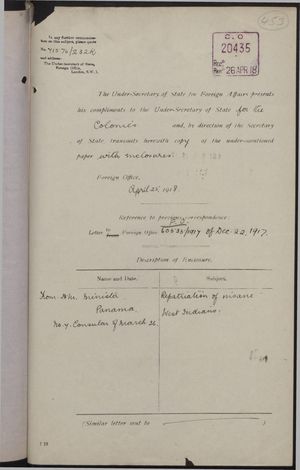 453
In any further communica-
tion on this subject, please quote
and address—
The Under-Secretary of State,
Foreign Office,
London, S.W. 1.
C.O.
20435
Recd
Regd 26 APR 18
The Under-Secretary of State for Foreign Affairs presents
his compliments to the Under-Secretary of State for the
Colonies and, by direction of the Secretary
of State, transmits herewith copy of the under-mentioned
paper with inclosures.
Foreign Office,
April 25, 1918.
Reference to previous correspondence:
Letter Foreign Office of Dec. 22, 1917.
Description of Enclosure.
Name and Date.
Subject.
From H.M. Minister
Panama.
No. 4 Consular of March 26.
Repatriation of insane
West Indians.
(Similar letter sent to